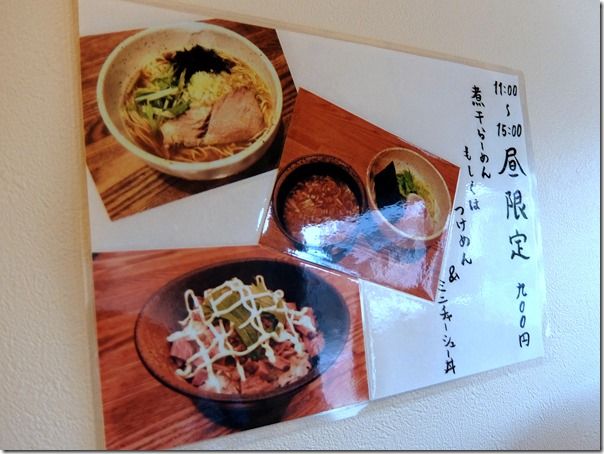 11:00~15:00 昼限定 九00円
煮干らーめん
もしくは
つけめん
&
ミニチャーシュー丼